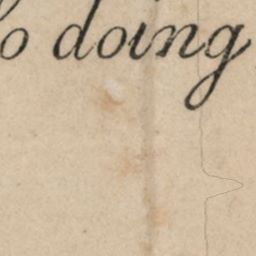 so doing